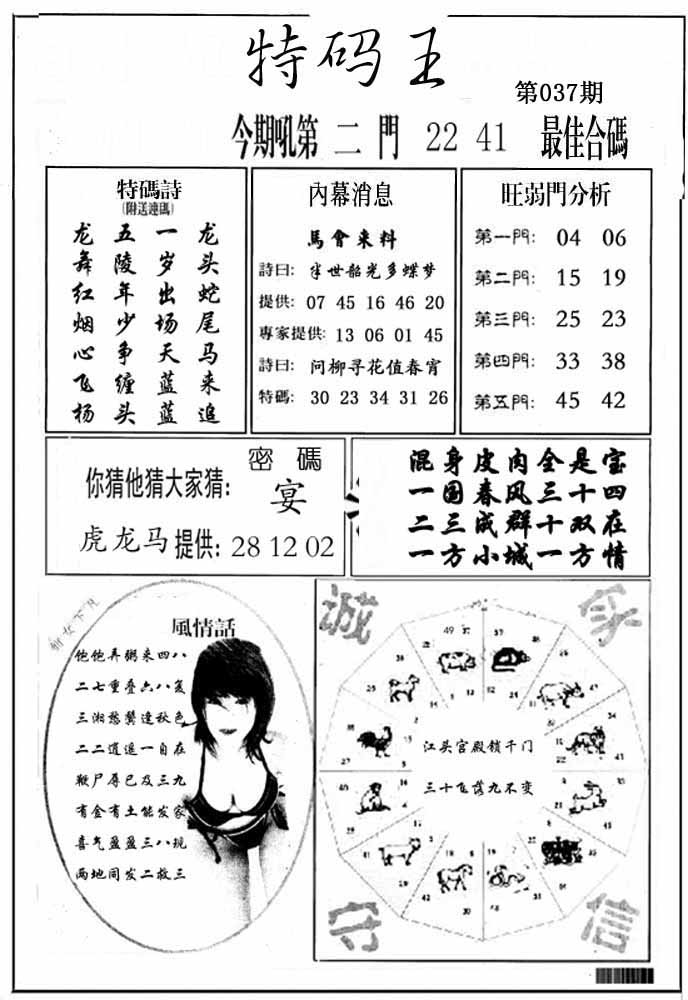 特码王
第037期
今期吼第二門 22 41 最佳合碼
特碼詩
(附送連碼)
龙五一龙
舞陵岁头
红年出蛇
烟少场尾
心争天马
飞缠蓝来
杨头蓝追
內幕消息
馬會来料
詩曰:半世韶光多蝶梦
提供:07 45 16 46 20
專家提供:13 06 01 45
詩曰:问柳寻花值春宵
特碼:30 23 34 31 26
旺弱門分析
第一門:04 06
第二門:15 19
第三門:25 23
第四門:33 38
第五門:45 42
密碼
你猜他猜大家猜:宴
虎龙马提供:28 12 02
混身皮肉全是宝
一国春风三十四
二三成群十双在
一方小城一方情
風情話
饱饱弄粥来四八
二七重叠六八爰
三湘愁鬓逢秋色
二二逍遥一自在
鞭尸辱已及三九
有金有土能发家
喜气盈盈三八规
两地同发二救三
诚
家
江头宫殿锁千门
三十飞落九不变
守
信